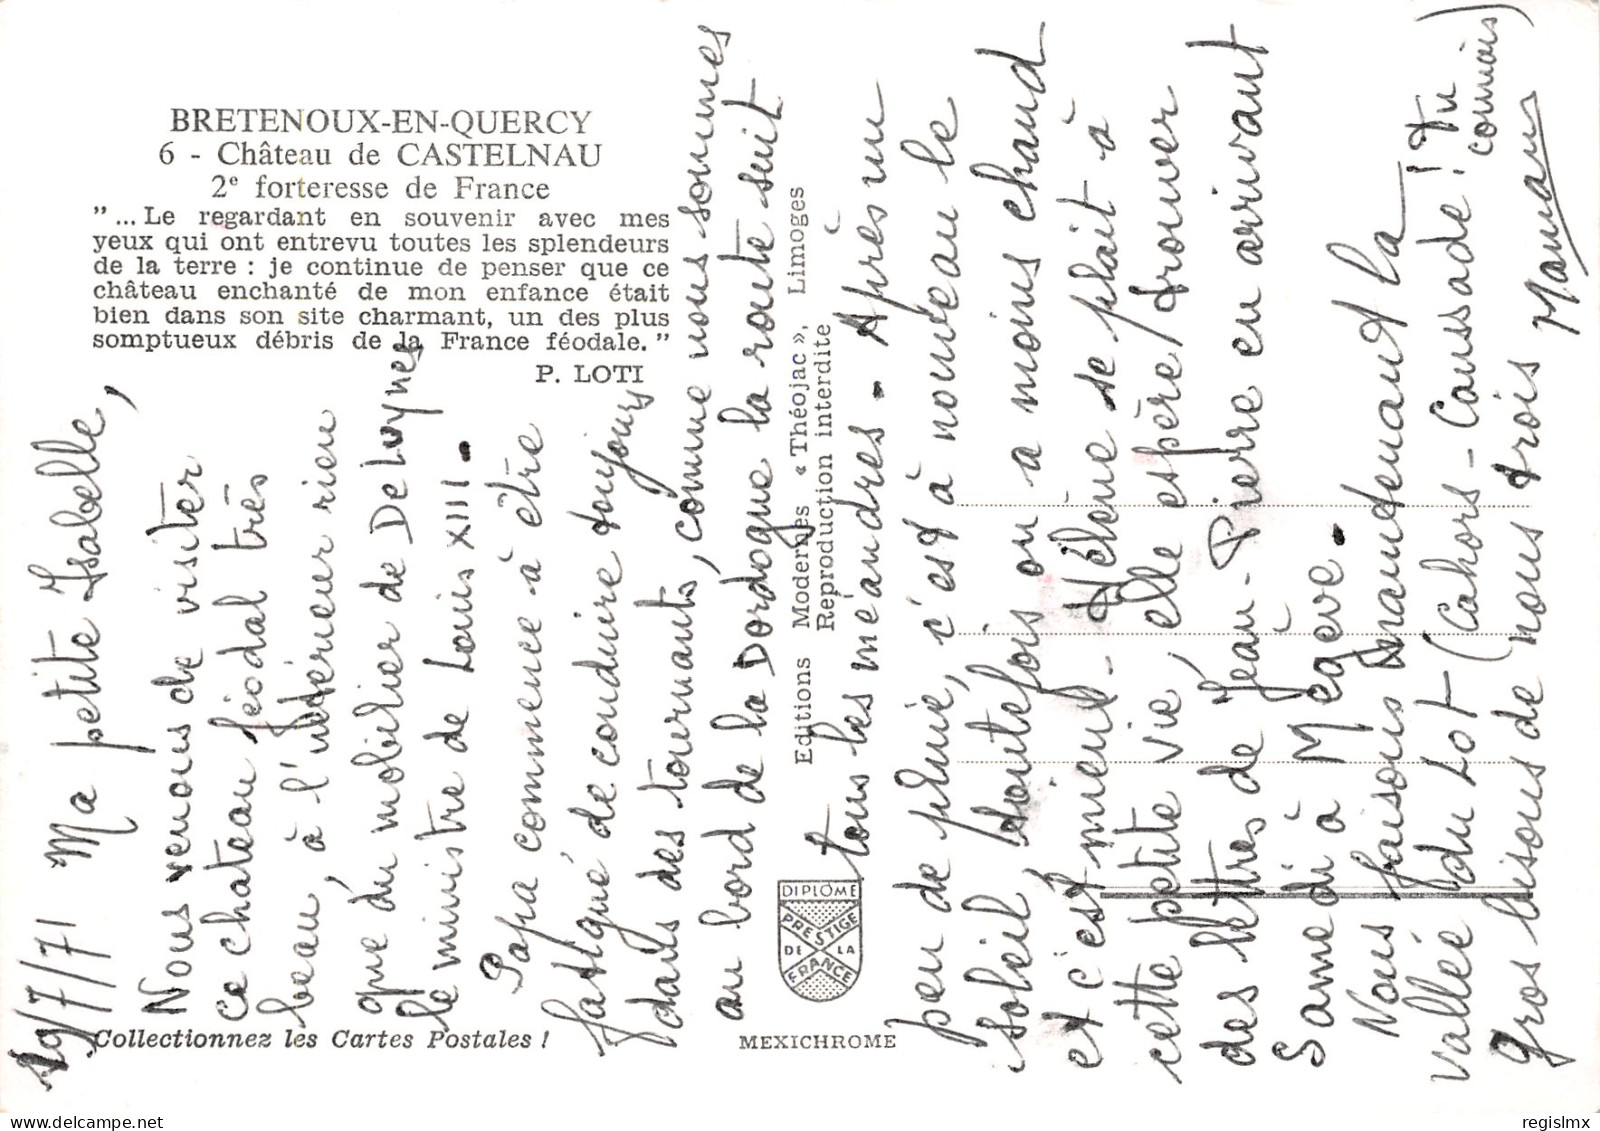 BRETENOUX-EN-QUERCY
6 - Château de CASTELNAU
2e forteresse de France
"... Le regardant en souvenir avec mes
yeux qui ont entrevu toutes les splendeurs
de la terre : je continue de penser que ce
château enchanté de mon enfance était
bien dans son site charmant, un des plus
somptueux débris de la France féodale."
P. LOTI
19/7/71 Ma petite Isabelle,
Nous venons de visiter
ce chateau féodal très
beau, à l'intérieur rien
que du mobilier de De Luynes
le ministre de Louis XIII.
Papa commence à être
fatigué de conduire toujours
dans des tournants, comme nous sommes
au bord de la Dordogne la route suit
tous les méandres. Après un
peu de pluie, c'est à nouveau le
soleil, toutefois on a moins chaud
et c'est mieux - Hélène se plait à
cette petite vie, elle espère trouver
des lettres de Jean-Pierre en arrivant
Samedi à Megève.
Nous faisons maintenant la
vallée du Lot (Cahors - Caussade ! Tu connais)
Gros bisous de nous trois
Maman
Editions Modernes « Théojac », Limoges
Reproduction interdite
DIPLOME
PRESTIGE
DE LA
FRANCE
Collectionnez les Cartes Postales !
MEXICHROME
delcampe.net
regislmx